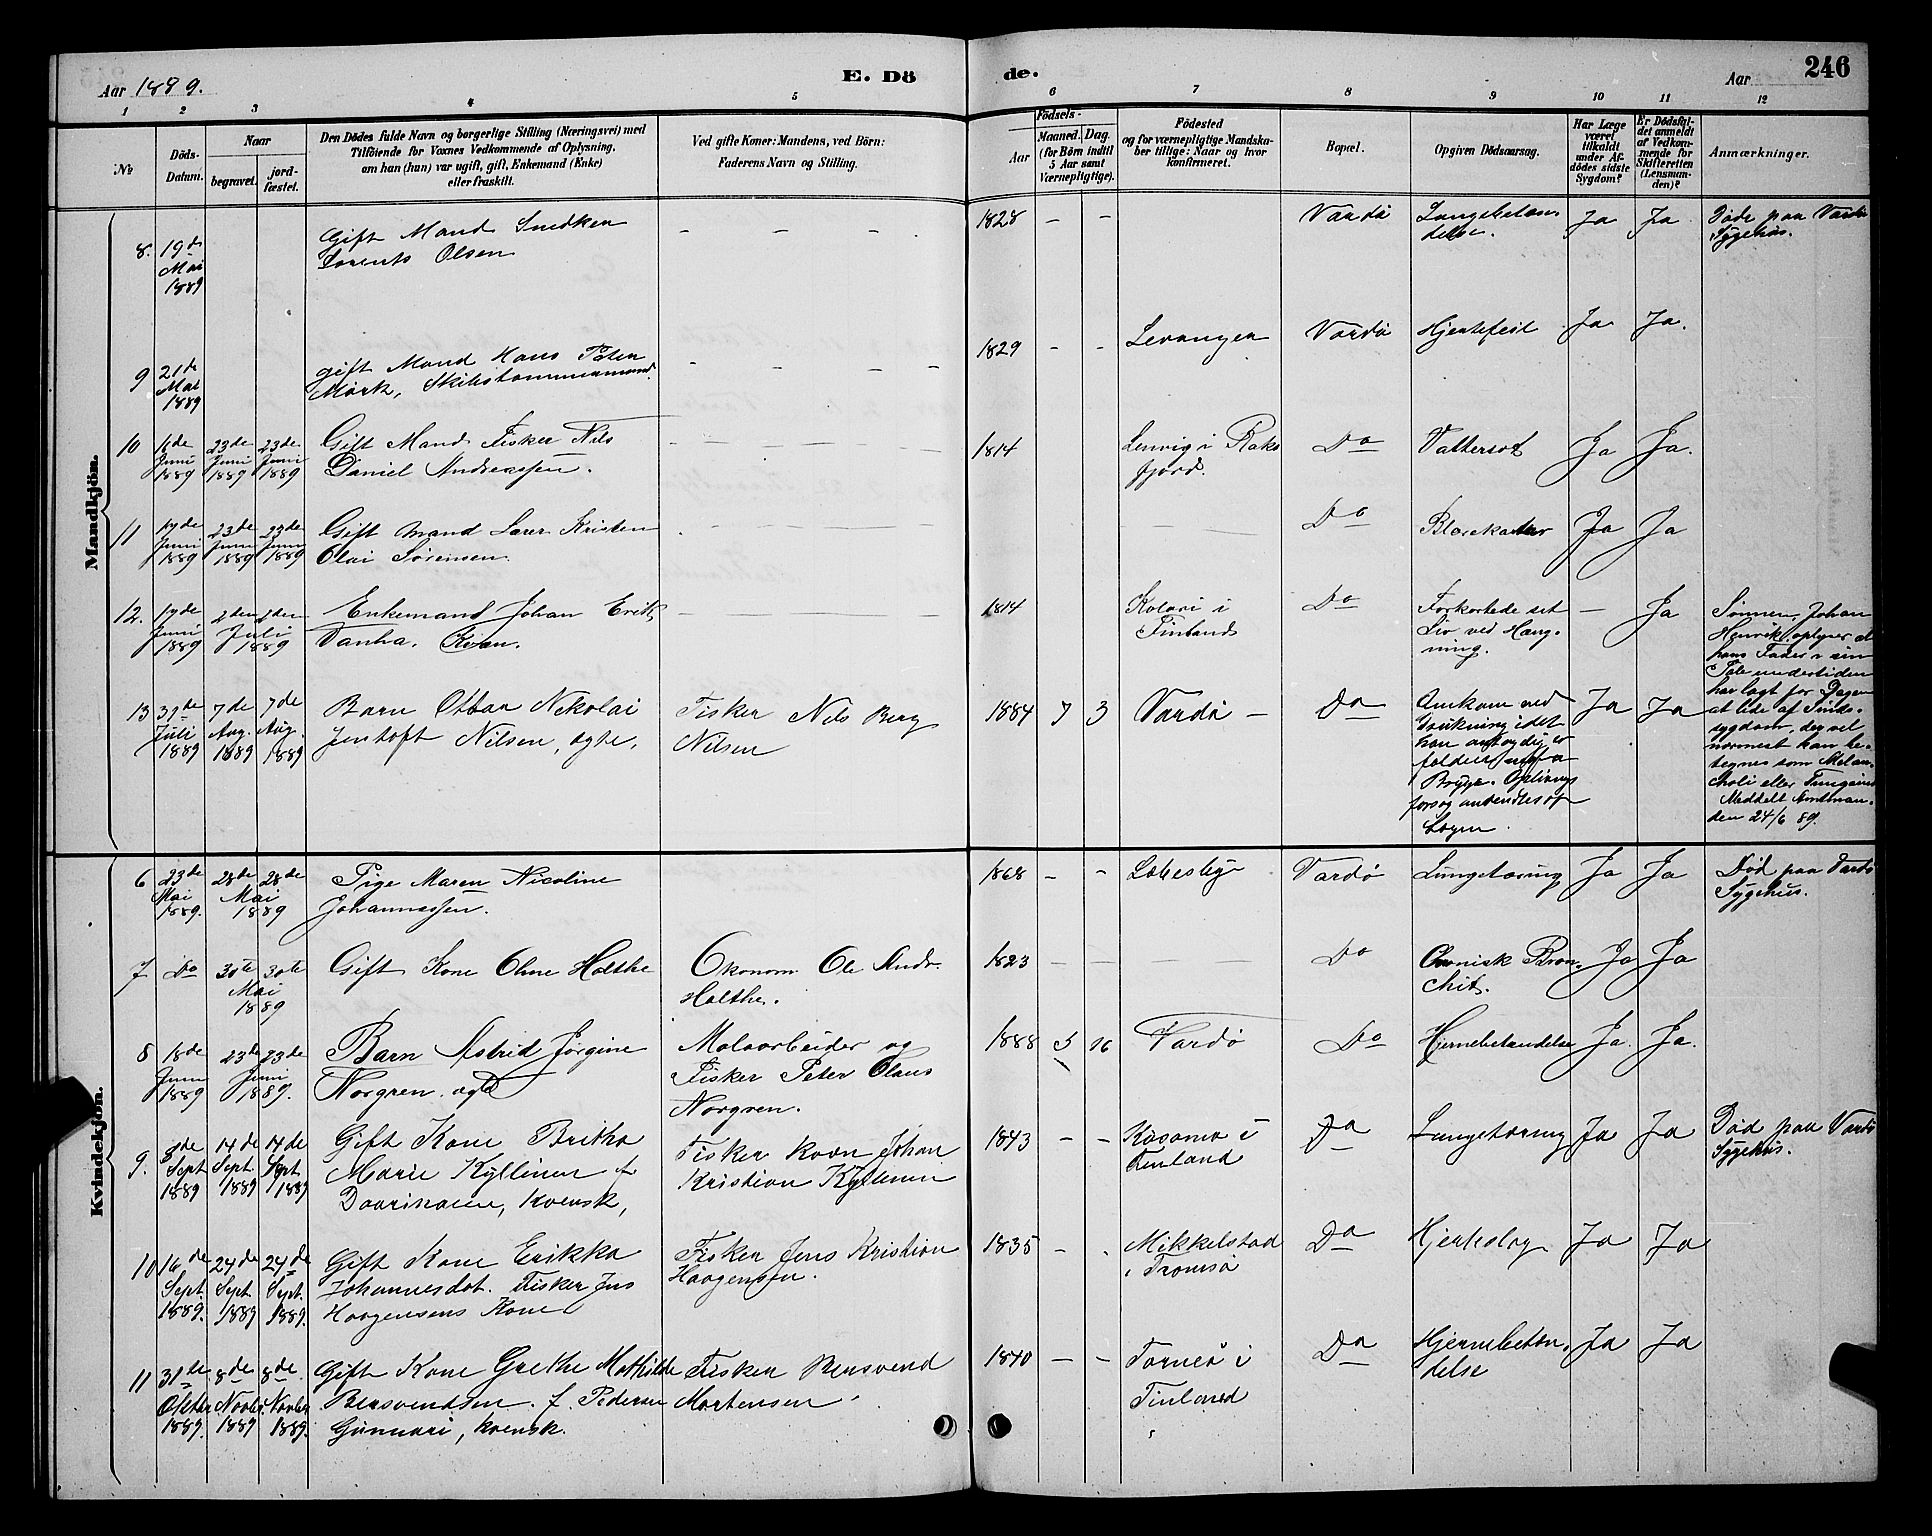 Aar 1889.
E. Dö
de.
Aar
246
1 2 3 4 5 6 7 8 9 10 11 12
№
Döds-
Datum.
Naar
begravet.
jord-
fæstet.
Den Dödes fulde Navn og borgerlige Stilling (Næringsvei) med
Tilföiende for Voxnes Vedkommende af Oplysning,
om han (hun) var ugift, gift, Enkemand (Enke)
eller fraskilt.
Ved gifte Koner: Mandens, ved Börn:
Faderens Navn og Stilling.
Födsels-
Aar
Maaned. Dag.
(for Börn indtil
5 Aar samt
Værnepligtige).
Födested
og for værnepligtige Mandska-
ber tillige: Naar og hvor
konfirmeret.
Bopæl.
Opgiven Dödsaarsag.
Har Læge
været
tilkaldt
under Af-
dödes sidste
Sygdom?
Er Dödsfal-
det anmeldt
af Vedkom-
mende for
Skifteretten
(Lensman-
den)?
Anmærkninger.
Mandkjön.
8. 19de Mai 1889
Gift Mand Snedker
Lorents Olsen
- - - -
1828 - -
Vardø
Lungebetæn
delse.
Ja Ja
Døde paa Vardø
Sygehus.
9 21de Mai 1889
gift Mand Hans Peter
Mørk, Skibstømmermand.
- - - -
1829 - -
Levanger
Vardø
Hjertefeil
Ja Ja.
10 6de Juni 1889
23de Juni 1889
23de Juni 1889
Gift Mand Fisker Nils
Daniel Andreassen.
1814
Lenvig i Raks
fjord.
Do
Vattersot
Ja Ja.
11 19de Juni 1889
23de Juni 1889
23de Juni 1889
Gift Mand Kristen
Olai Sørensen.
Do
Blærekatar
Ja Ja
12. 19de Juni 1889
2den 2den
Juli 1889
Enkemand Johan Erik
Vanha. Kvæn.
1814
Kolari i
Finland
Do
Forkortede sit
Liv ved Hæng-
ning.
- Ja
Sønnen Johan
Henrik oplyser at
hans Fader i sin
Tale undertiden
har lagt for Dagen
at lide af Sinds-
sygdom, der vel
nærmest kan be-
tegnes som Melan-
choli eller Tungsind
Meddelt Amtman-
den 24/6 89.
13 31te Juli 1889
7de Aug. 1889
7de Aug. 1889
Barn Ottar Nikolai
Jentoft Nilsen, ægte.
Fisker Nils Berg
Nilsen
1884 7 3
Vardø -
Do
Omkom ved
Drukning idet
han antagelig er
falden ud fra
Brygge. Oplivnings
forsøg anvendtes af
Lægen.
Ja Ja
Kvindekjön.
6 23de Mai 1889.
28de 28de
Mai 1889
Pige Maren Nicoline
Johannessen.
1868 - -
Lebesby
Vardø
Lungetæring
Ja Ja
Død paa Vardø
Sygehus.
7 Do
30te 30te
Mai 1889
Gift Kone Oline Holthe
Økonom Ole Andr.
Holthe.
1823
Do
Chronisk Bron-
chit.
Ja Ja
8 18de Juni 1889
23de 23de
Juni 1889.
Barn Astrid Jørgine
Norgren. ægte
Moloarbeider og
Fisker Peter Olaus
Norgren.
1888 5 16
Vardø
Do
Hjernebetændelse
Ja. Ja.
9. 8de Sept 1889
14de Sept. 1889
14de Sept 1889
Gift Kone Britha
Marie Kyllinen f
kvensk,
Fisker Kvæn Johan
Kristian Kyllinen
1843 - -
Kusamo i
Finland
Do
Lungetæring
Ja Ja
Død paa Vardø
Sygehus.
10 16de Sept 1889.
24de Sept 1889
24de Sept. 1889.
Gift Kone Erikka
Johannesdat. Fisker Jens
Haagensens Kone
Fisker Jens Kristian
Haagensen.
1835 - -
Mikkelstad
i Tromsø
Do
Hjerteslag
Ja Ja
11 31te Oktbr 1889.
8de Novbr. 1889
8de Novbr. 1889.
Gift Kone Grethe Mathilde
Bersvendsen. f. Pedersen
Gunnari, kvensk.
Fisker Bersvend
Mortensen
1840 - -
Torneå i
Finland
Do
Hjernebetæn-
delse
Ja Ja